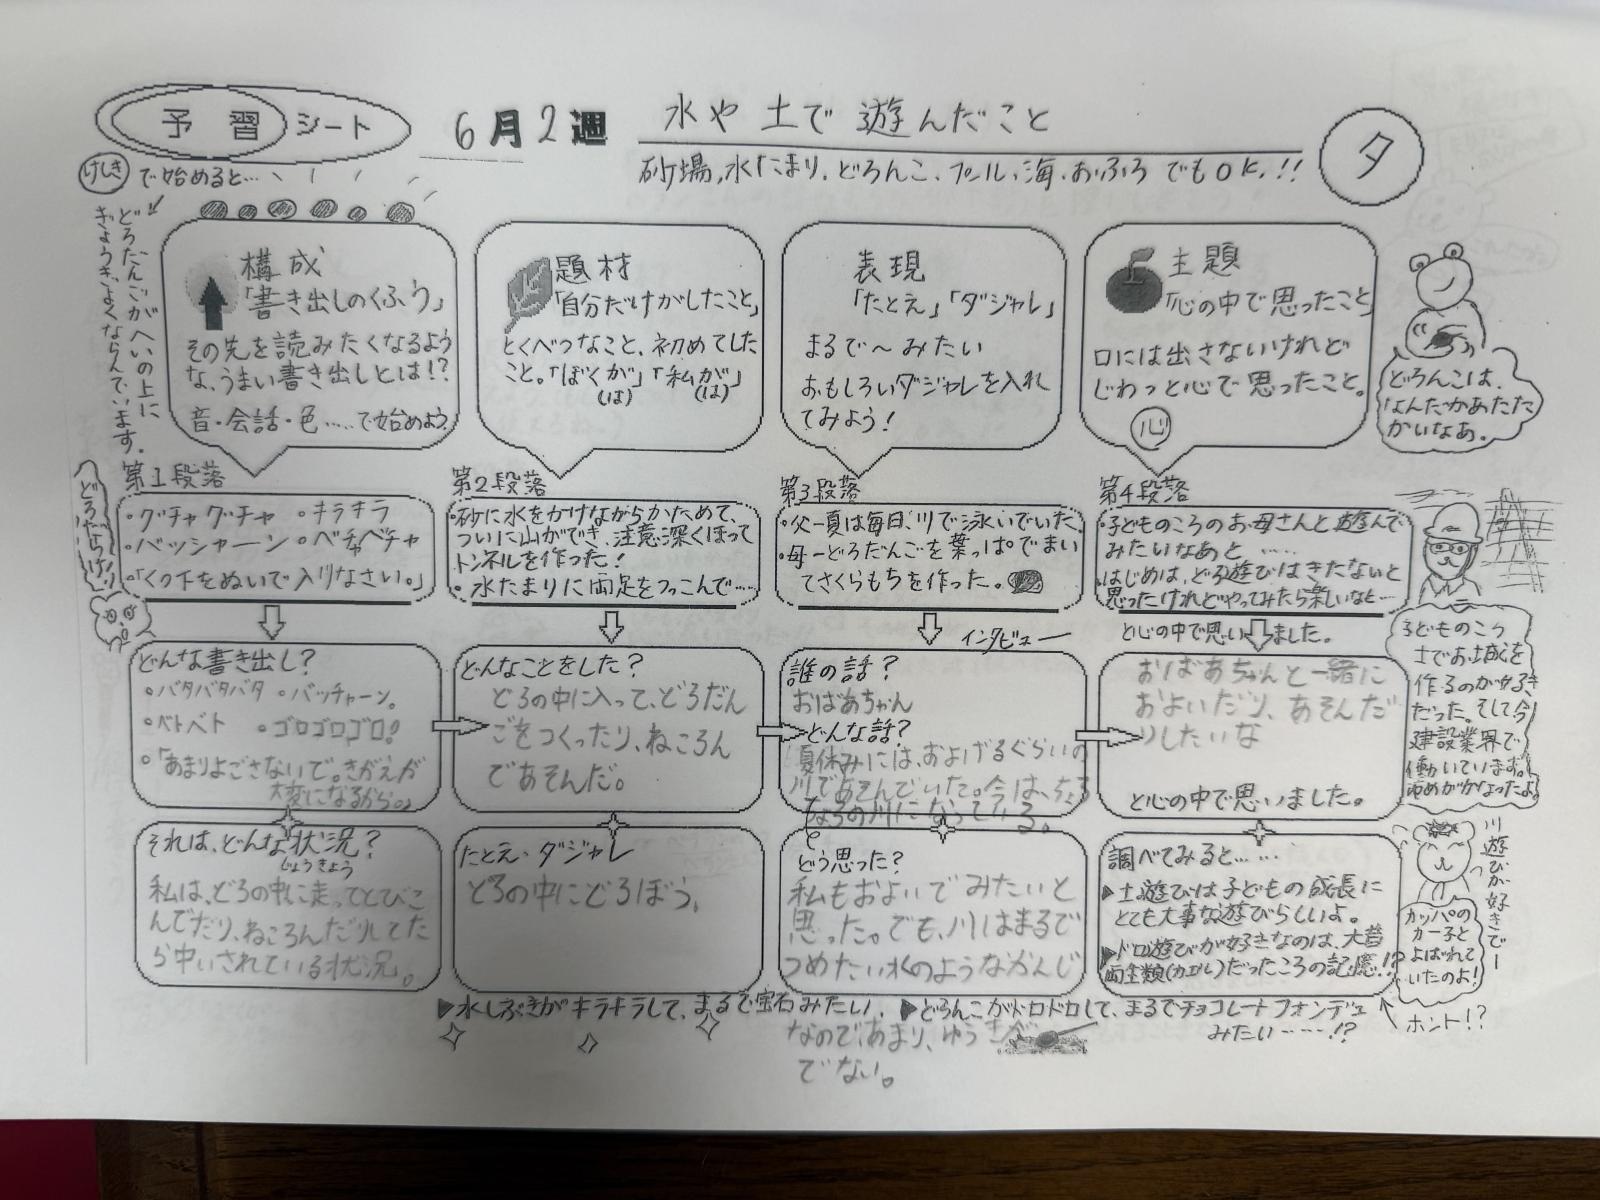 予習シート
6月2週
水や土で遊んだこと
砂場、水たまり、どろんこ、プール、海、おふろでもOK!!
夕
けしきで始めると…
どろだんごがへいの上に
ぎょうぎよくならんでいます。
構成
「書き出しのくふう」
その先を読みたくなるよう
な、うまい書き出しとは!?
音・会話・色……で始めよう。
題材
「自分だけがしたこと」
とくべつなこと、初めてした
こと。「ぼくが」「私が」
(は) (は)
表現
「たとえ」「ダジャレ」
まるで～みたい
おもしろいダジャレを入れ
てみよう!
主題
「心の中で思ったこと」
口には出さないけれど
じわっと心で思ったこと。
心
どろんこは、
なんだかあたた
かいなあ。
どろだらけ!
第1段落
・グチャグチャ ・キラキラ
・バッシャーン ・ベチャベチャ
・「くつ下をぬいで入りなさい。」
第2段落
・砂に水をかけながらかためて、
ついに山ができ、注意深くほって
トンネルを作った!
・水たまりに両足をつっこんで…
第3段落
・父―夏は毎日、川で泳いでいた。
・母―どろだんごを葉っぱでまい
てさくらもちを作った。
第4段落
・子どものころのお母さんと遊んで
みたいなあと……
・はじめは、どろ遊びはきたないと
思ったけれどやってみたら楽しいなと…
と心の中で思いました。
どんな書き出し?
・バタバタバタ ・バッチャーン。
・ベトベト ・ゴロゴロゴロ!
・「あまりよごさないで。きがえが
大変になるから。」
どんなことをした?
どろの中に入って、どろだん
ごをつくったり、ねころん
であそんだ。
インタビュー
誰の話?
おばあちゃん
どんな話?
夏休みには、およげるぐらいの
川であそんでいた。今は、ちょろ
ちょろの川になっている。
おばあちゃんと一緒に
およいだり、あそんだ
りしたいな
と心の中で思いました。
子どものころ
土でお城を
作るのが好き
だった。そして今
建設業界で
働いています。
ゆめがかなったよ。
それは、どんな状況?
じょうきょう
私は、どろの中に走ってとびこ
んでだり、ねころんだりしてた
ら中いされている状況。
たとえ・ダジャレ
どろの中にどろぼう。
どう思った?
私もおよいでみたいと
思った。でも、川はまるで
つめたい氷のようなかんじ
なので、あまり、ゆうきが
でない。
調べてみると……
▶土遊びは子どもの成長に
とても大事な遊びらしいよ。
▶ドロ遊びが好きなのは、大昔
両生類(カエル)だったころの記憶!?
ホント!?
川遊びが好きでー
カッパの
カー子と
よばれて
いたのよ!
▶水しぶきがキラキラして、まるで宝石みたい。
▶どろんこがドロドロして、まるでチョコレートフォンデュ
みたい……!?